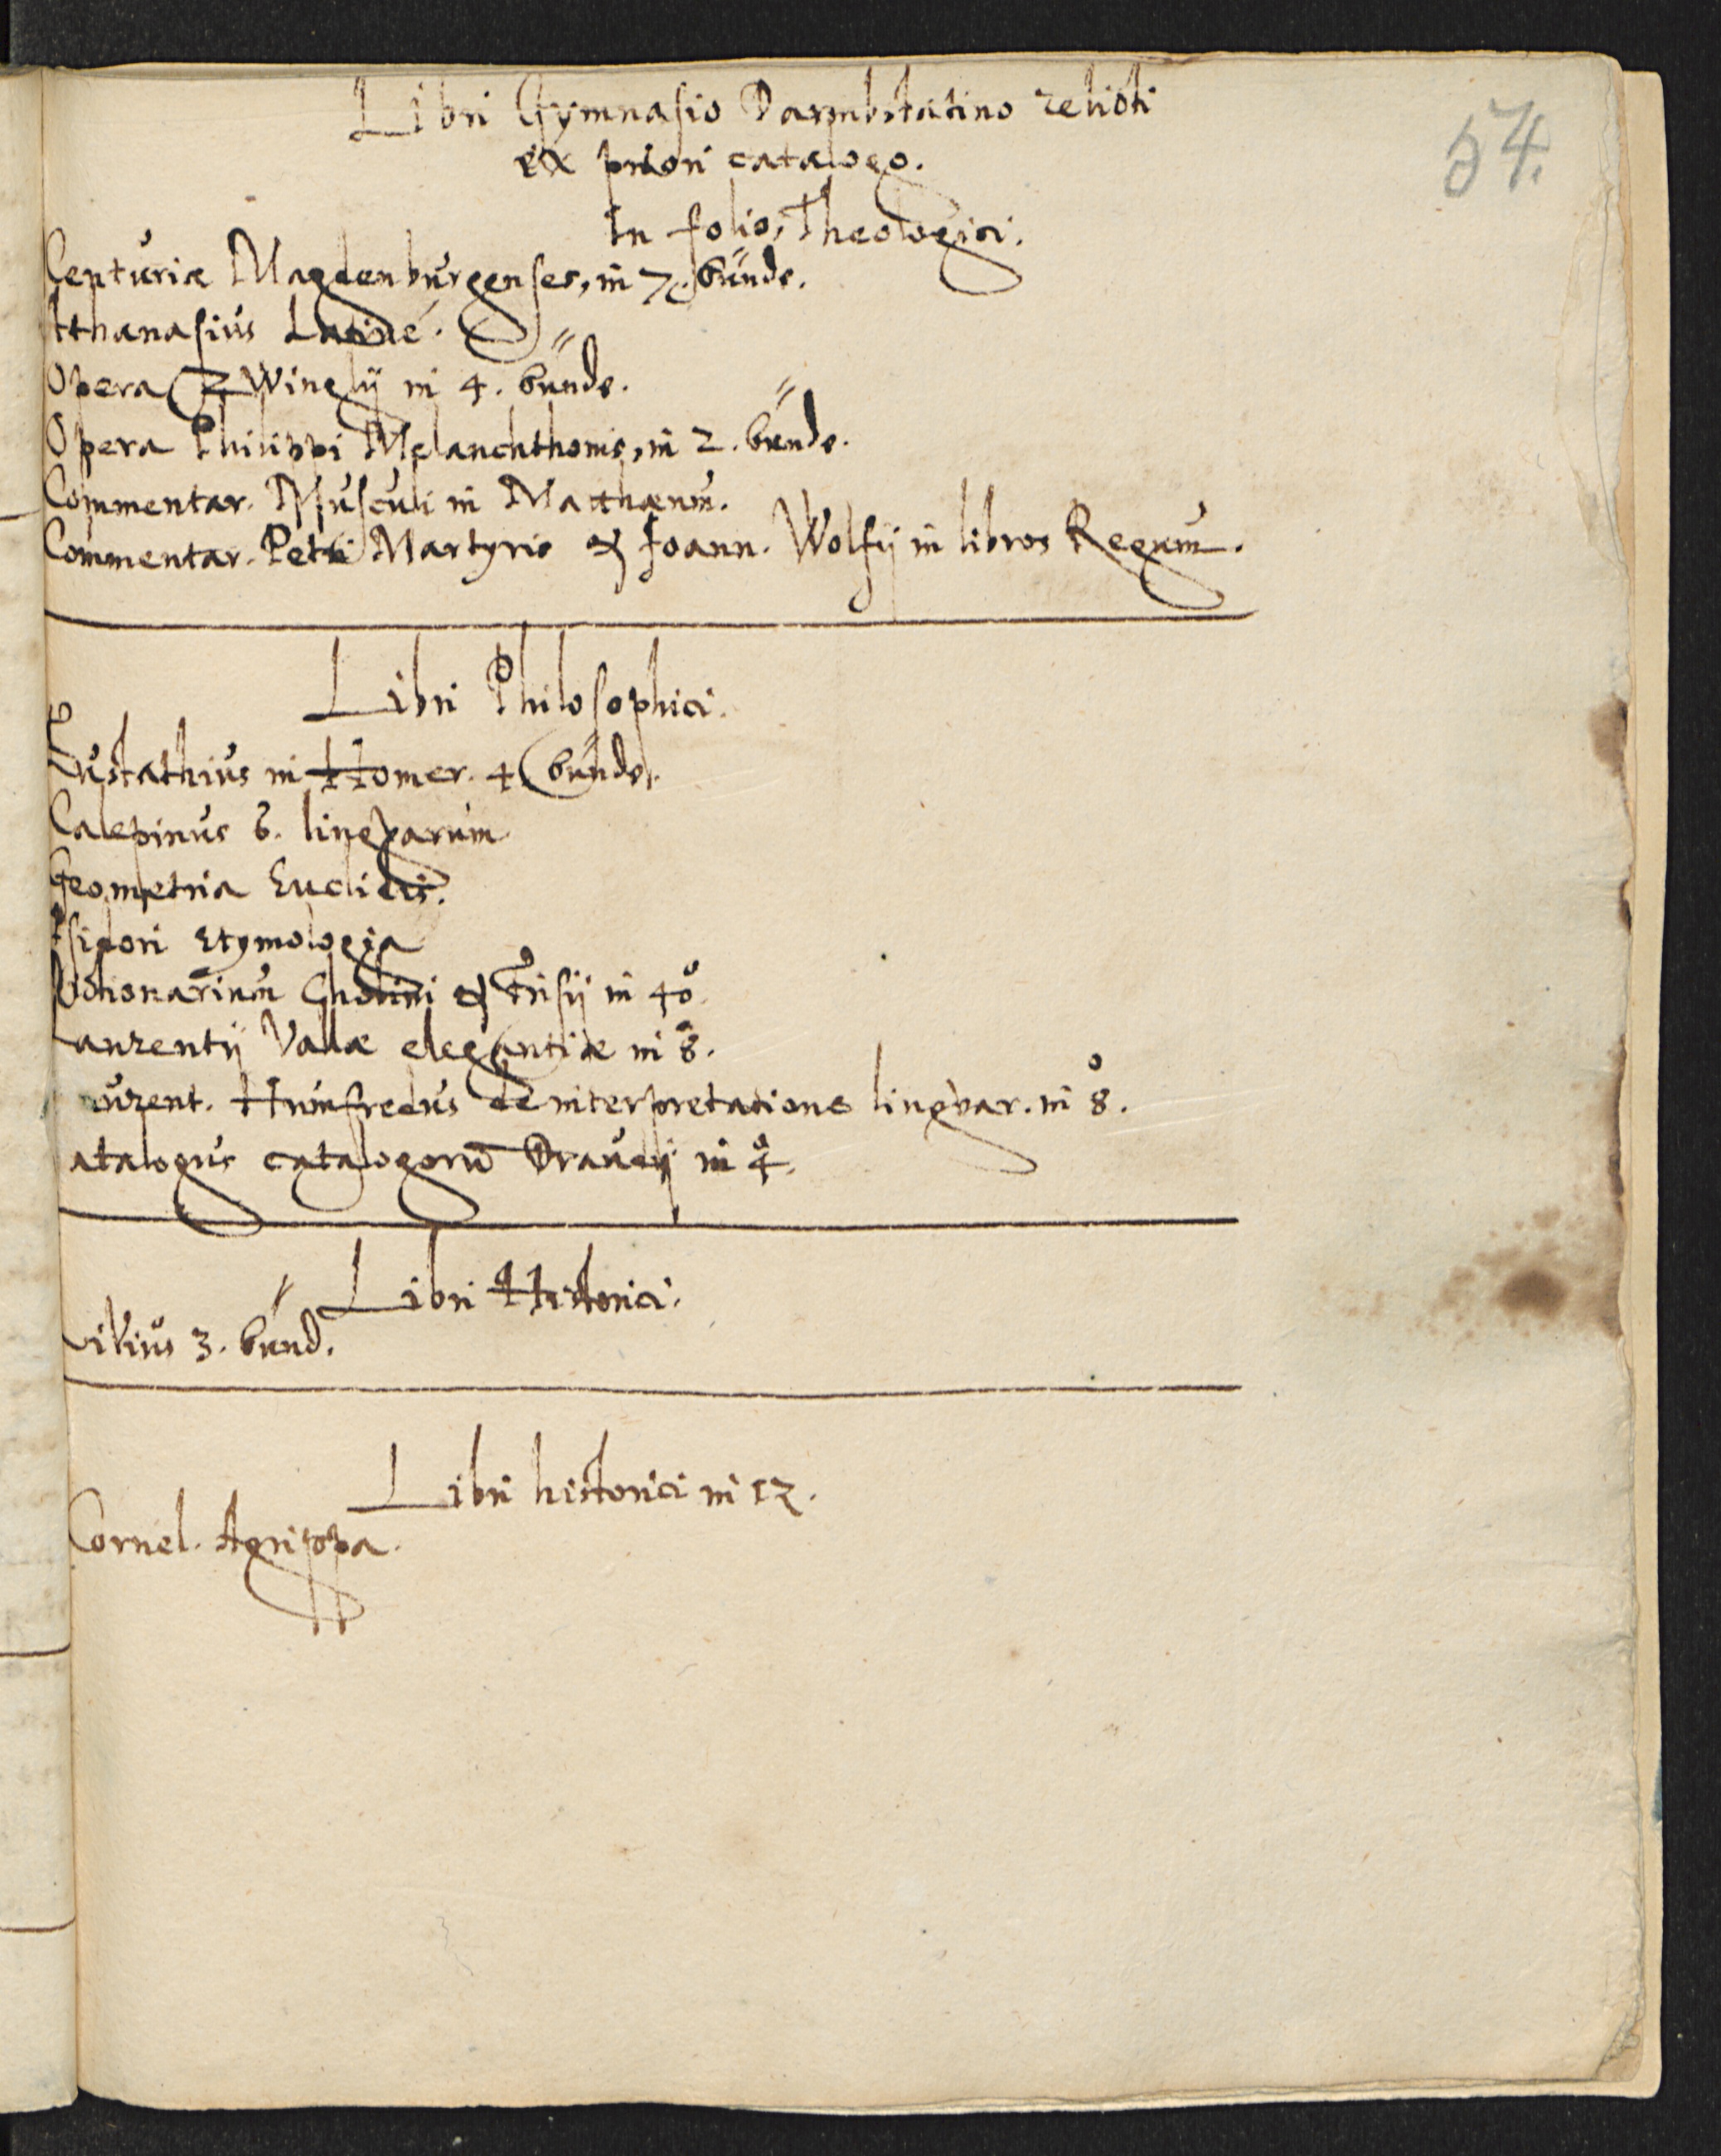 54.
Libri Gymnasio Darmbstatino relicti
ex priori catalogo.
In folio, Theologici.
Centuriæ Magdenburgenses, in 7. bünde.
Athanasius Latinè.
Opera Zwinglij in 4. bünde.
Opera Philippi Melanchthonis, in 2. bünde.
Commentar. Musculi in Matthæum.
Commentar. Petri Martyris & Joann. Wolfij in libros Regum.
Libri Philosophici.
Eustathius in Homer. 4 bünde.
Calepinus 6. lingvarum
Geometria Euclidis.
Isidori Etymologia
Dictionarium Cholini & Frisij in 4o.
Laurentij Vallæ elegantiæ in 8.
aurent. Humfredus de interpretatione lingvar. in 8.
atalogus catalogorū Draudij in 4.
Libri Historici.
Livius 3. bünd.
Libri historici in 12.
Cornel. Agrippa.